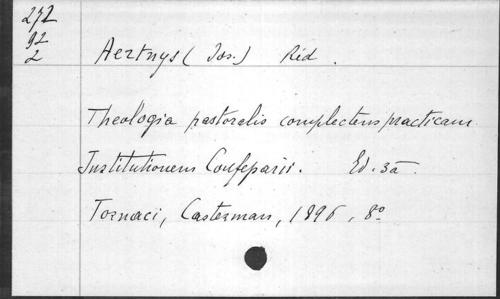 272
92
2
Aertnys (Jos.) Rid.
Theologia pastoralis complectens practicam
Institutionem Confeparii. Ed. 3a
Tornaci, Casterman, 1896, 8º